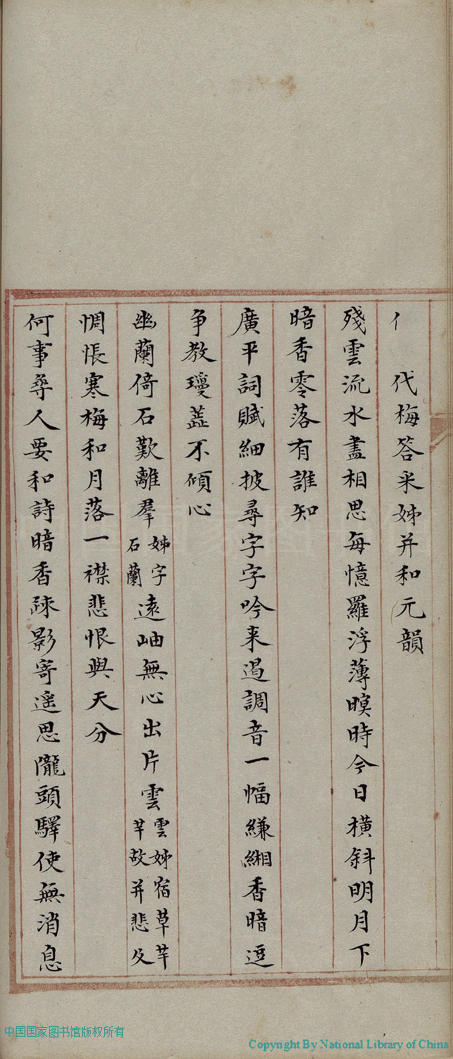 代梅答米姊并和元韻
殘雲流水盡相思每憶羅浮薄暝時今日橫斜明月下
暗香零落有誰知
廣平詞賦細披尋字字吟来過調音一幅縑緗香暗逗
争教瓊蕋不傾心
幽蘭倚石歎離羣姊字石蘭遠岫無心出片雲雲姊宿草芊芊故并悲及
惆悵寒梅和月落一襟悲恨與天分
何事尋人要和詩暗香疎影寄遥思隴頭驛使無消息
中国国家图书馆版权所有
Copyright By National Library of China